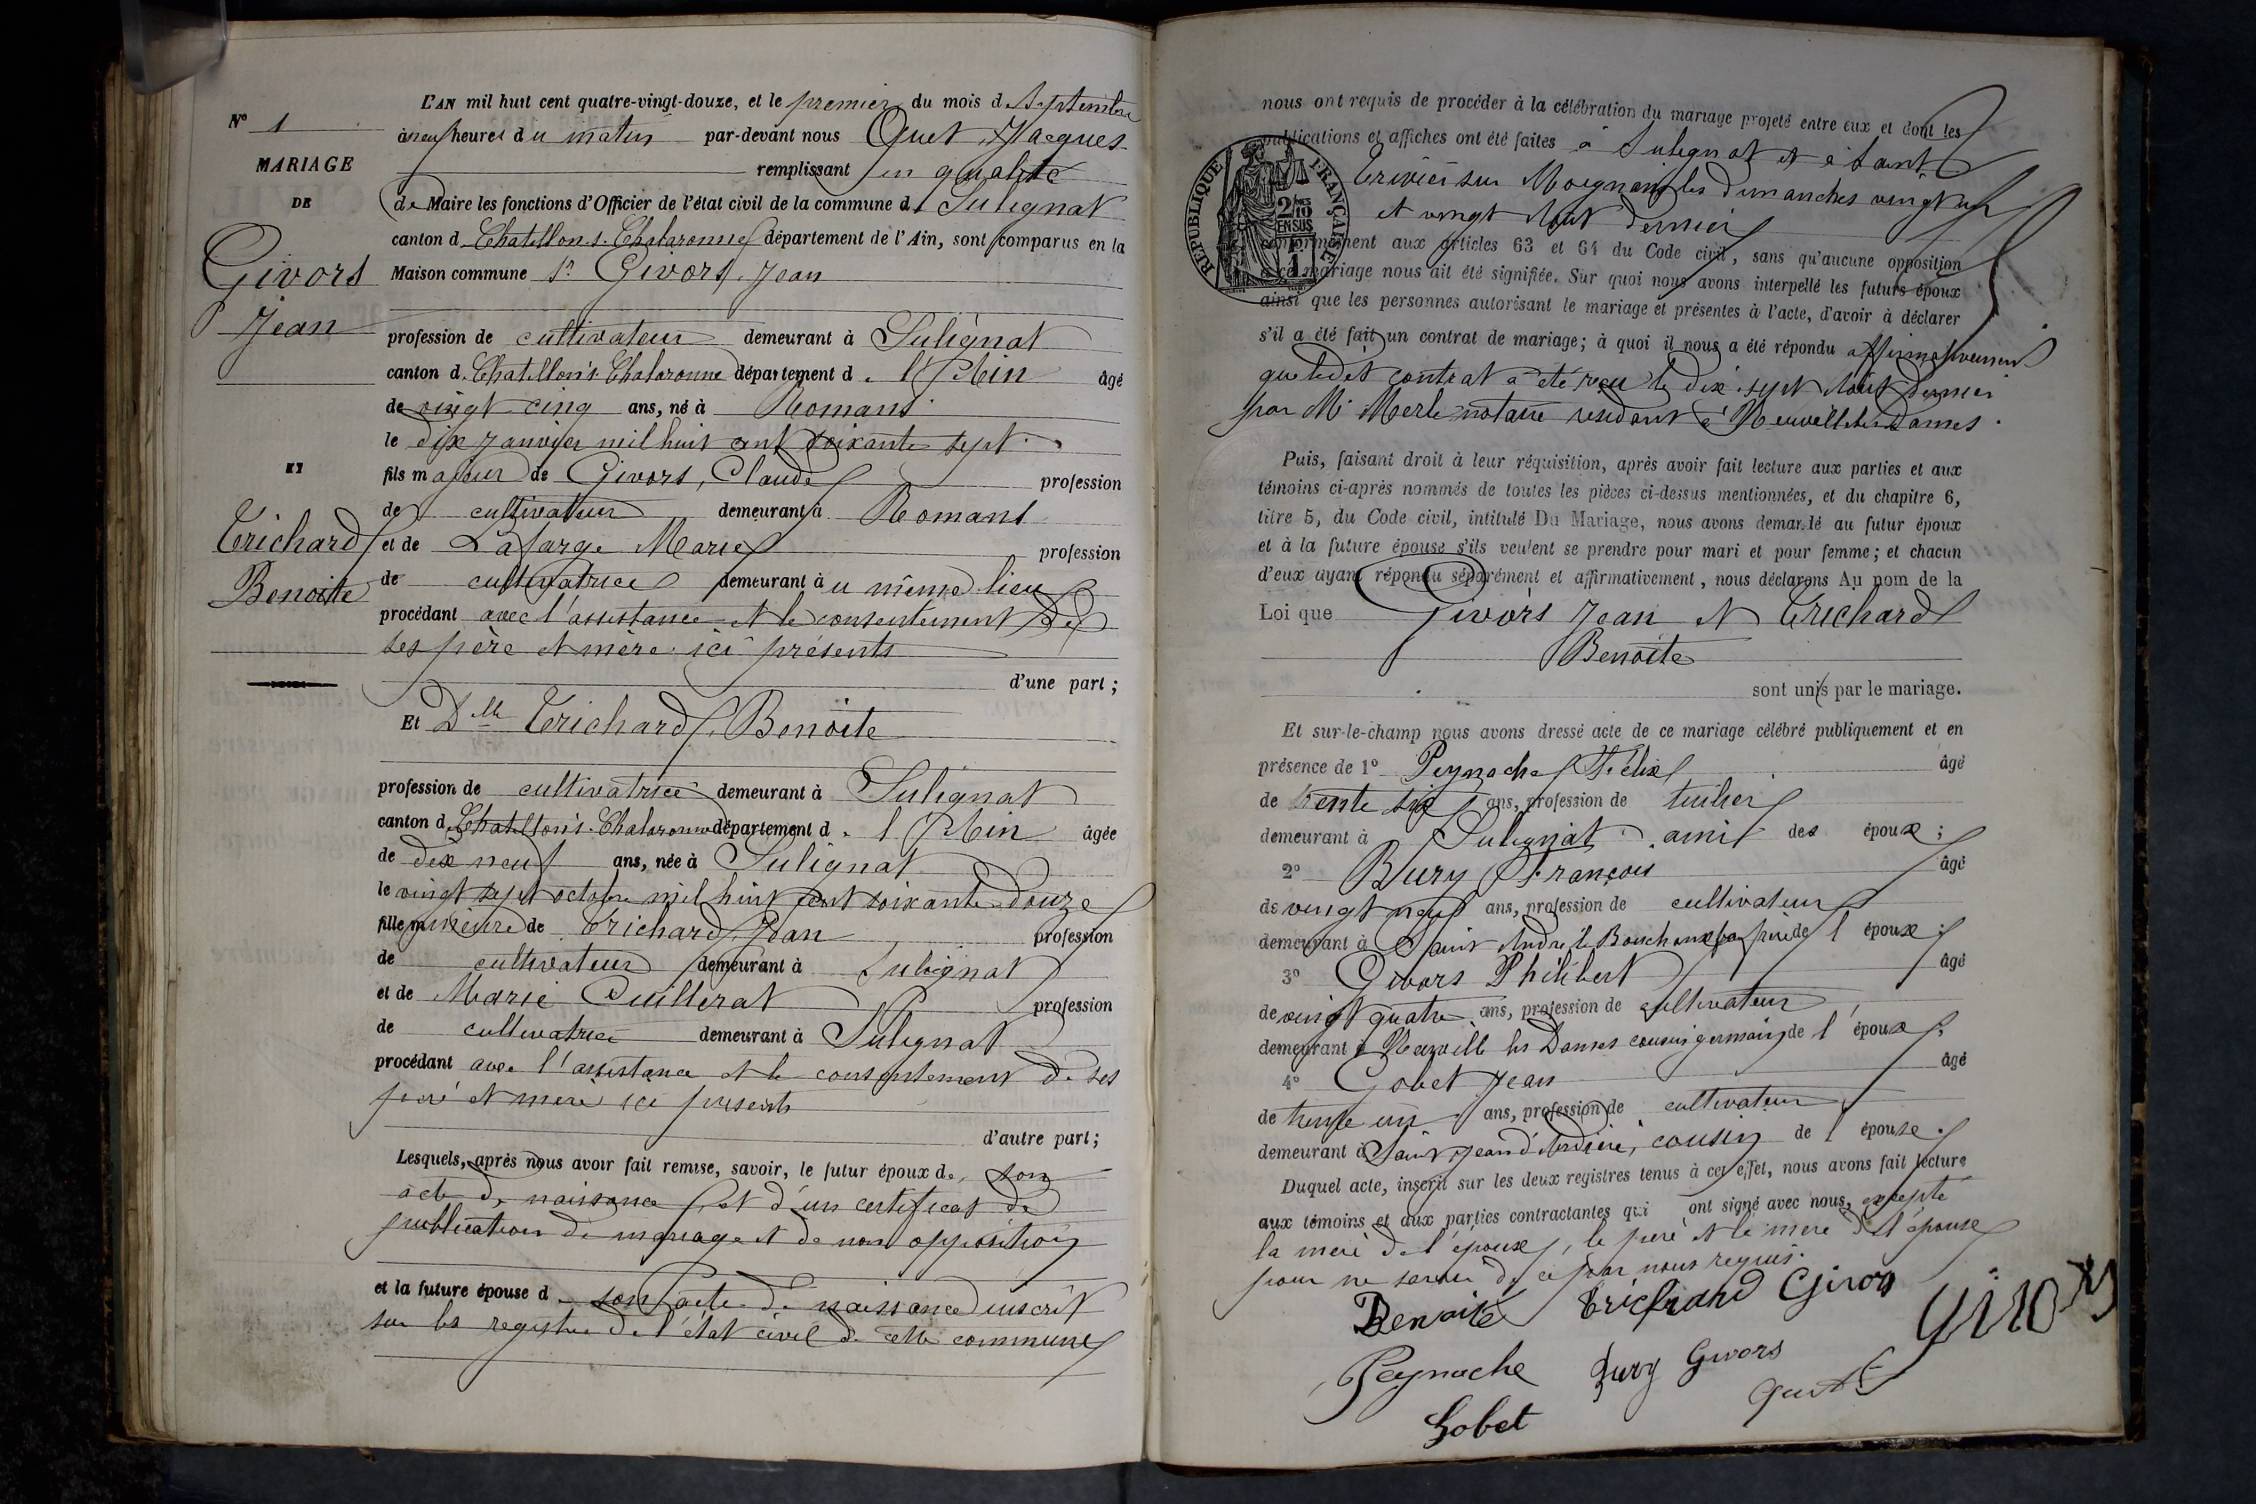 L'AN mil huit cent quatre-vingt-douze, et le premier du mois de Septembre
N° 1
à neuf heures du matin par-devant nous Quet Jacques
MARIAGE
remplissant en qualité
DE
de Maire les fonctions d'Officier de l'état civil de la commune de Sulignat
canton de Chatillon s. Chalaronne département de l'Ain, sont comparus en la
Givors
Maison commune 1° Givors, Jean
Jean
profession de cultivateur demeurant à Sulignat
canton de Chatillon s. Chalaronne département de l'Ain âgé
de vingt cinq ans, né à Romans
le dix janvier mil huit cent soixante sept
ET
fils majeur de Givors, Claude profession
de cultivateur demeurant à Romans
Trichard
et de Lafarge Marie profession
Benoite
de cultivatrice demeurant à u même lieu
procédant avec l'assistance et le consentement de
ses père et mère ici présents
d'une part ;
Et Dlle Trichard, Benoite
profession de cultivatrice demeurant à Sulignat
canton de Chatillon s. Chalaronne département de l'Ain âgée
de dix neuf ans, née à Sulignat
le vingt sept octobre mil huit cent soixante douze
fille mineure de Trichard Jean profession
de cultivateur demeurant à Sulignat
et de Marie Cuillerat profession
de cultivatrice demeurant à Sulignat
procédant avec l'assistance et le consentement de ses
père et mère ici présents
d'autre part ;
Lesquels, après nous avoir fait remise, savoir, le futur époux de son
acte de naissance et d'un certificat de
publication de mariage et de non opposition
et la future épouse d son acte de naissance inscrit
sur les registres de l'état civil de cette commune
nous ont requis de procéder à la célébration du mariage projeté entre eux et dont les
publications et affiches ont été faites à Sulignat et à Saint
Trivier sur Moignans les dimanches vingt un
et vingt Aout dernier
RÉPUBLIQUE FRANÇAISE
2/10 EN SUS
conformément aux articles 63 et 64 du Code civil, sans qu'aucune opposition
à ce mariage nous ait été signifiée. Sur quoi nous avons interpellé les futurs époux
ainsi que les personnes autorisant le mariage et présentes à l'acte, d'avoir à déclarer
s'il a été fait un contrat de mariage ; à quoi il nous a été répondu affirmativement
que ledit contrat a été reçu le dix sept Août dernier
par Me Merle notaire résidant à Neuville les Dames.
Puis, faisant droit à leur réquisition, après avoir fait lecture aux parties et aux
témoins ci-après nommés de toutes les pièces ci-dessus mentionnées, et du chapitre 6,
titre 5, du Code civil, intitulé Du Mariage, nous avons demandé au futur époux
et à la future épouse s'ils veulent se prendre pour mari et pour femme ; et chacun
d'eux ayant répondu séparément et affirmativement, nous déclarons Au nom de la
Loi que Givors Jean et Trichard
Benoite
sont unis par le mariage.
Et sur-le-champ nous avons dressé acte de ce mariage célébré publiquement et en
présence de 1° Peynache Félix âgé
de trente six ans, profession de tuilier
demeurant à Sulignat ami des époux ;
2° Bury François âgé
de vingt neuf ans, profession de cultivateur
demeurant à Saint André le Bouchoux de l époux ;
3° Givors Philibert âgé
de vingt quatre ans, profession de cultivateur
demeurant à Neuville les Dames cousin germain de l' époux ;
4° Gobet Jean âgé
de trente un ans, profession de cultivateur
demeurant à Saint Jean cousin de l épouse.
Duquel acte, inscrit sur les deux registres tenus à cet effet, nous avons fait lecture
aux témoins et aux parties contractantes qui ont signé avec nous, excepté
la mère de l'époux, le père et la mère de l'épouse
pour ne savoir de ce par nous requis.
Benoite Trichard Givors Givors
Peynache Bury Givors
Quet
Gobet